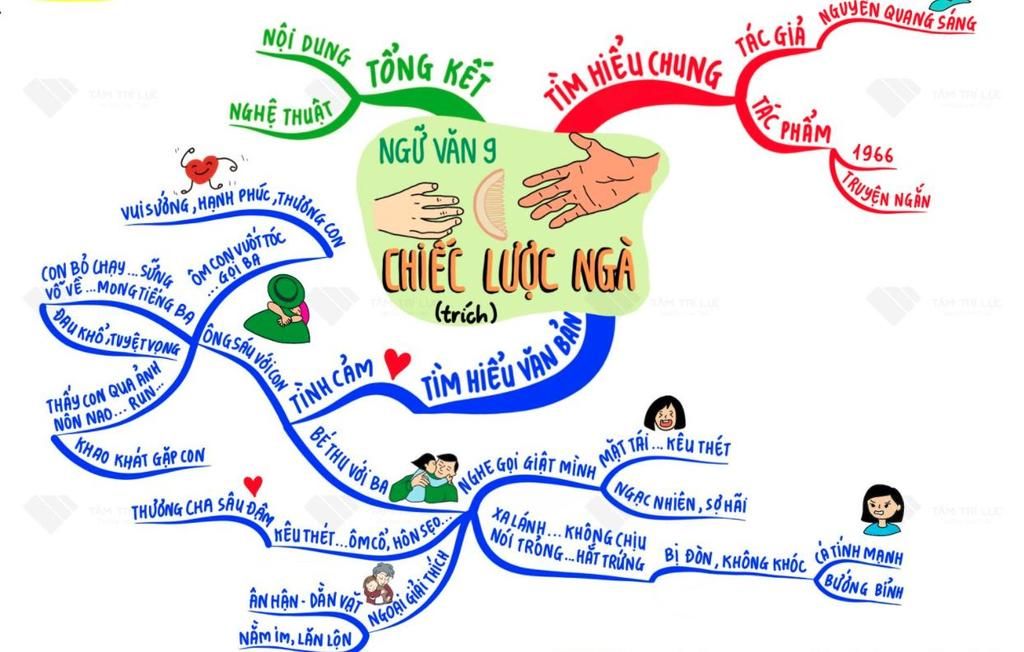 NGỮ VĂN 9
CHIẾC LƯỢC NGÀ
(trích)
TÌM HIỂU CHUNG
TÁC GIẢ
NGUYỄN QUANG SÁNG
TÁC PHẨM
1966
TRUYỆN NGẮN
TÌM HIỂU VĂN BẢN
TÌNH CẢM
ÔNG SÁU VỚI CON
THẤY CON QUA ẢNH
NÔN NAO... RUN...
KHAO KHÁT GẶP CON
CON BỎ CHẠY...SỮNG
VỖ VỀ...MONG TIẾNG BA
ĐAU KHỔ, TUYỆT VỌNG
ÔM CON VUỐT TÓC
... GỌI BA
VUI SƯỚNG, HẠNH PHÚC, THƯƠNG CON
BÉ THU VỚI BA
NGHE GỌI GIẬT MÌNH
MẶT TÁI... KÊU THÉT
NGẠC NHIÊN, SỢ HÃI
XA LÁNH... KHÔNG CHỊU
NÓI TRỎNG...HẤT TRỨNG
BỊ ĐÒN, KHÔNG KHÓC
CÁ TÍNH MẠNH
BƯỚNG BỈNH
NGOẠI GIẢI THÍCH
ÂN HẬN - DẰN VẶT
NẰM IM, LĂN LỘN
KÊU THÉT...ÔM CỔ, HÔN SẸO...
THƯƠNG CHA SÂU ĐẬM
TỔNG KẾT
NỘI DUNG
NGHỆ THUẬT
TÂM TRÍ LỰC
TÂM TRÍ LỰC
TÂM TRÍ LỰC